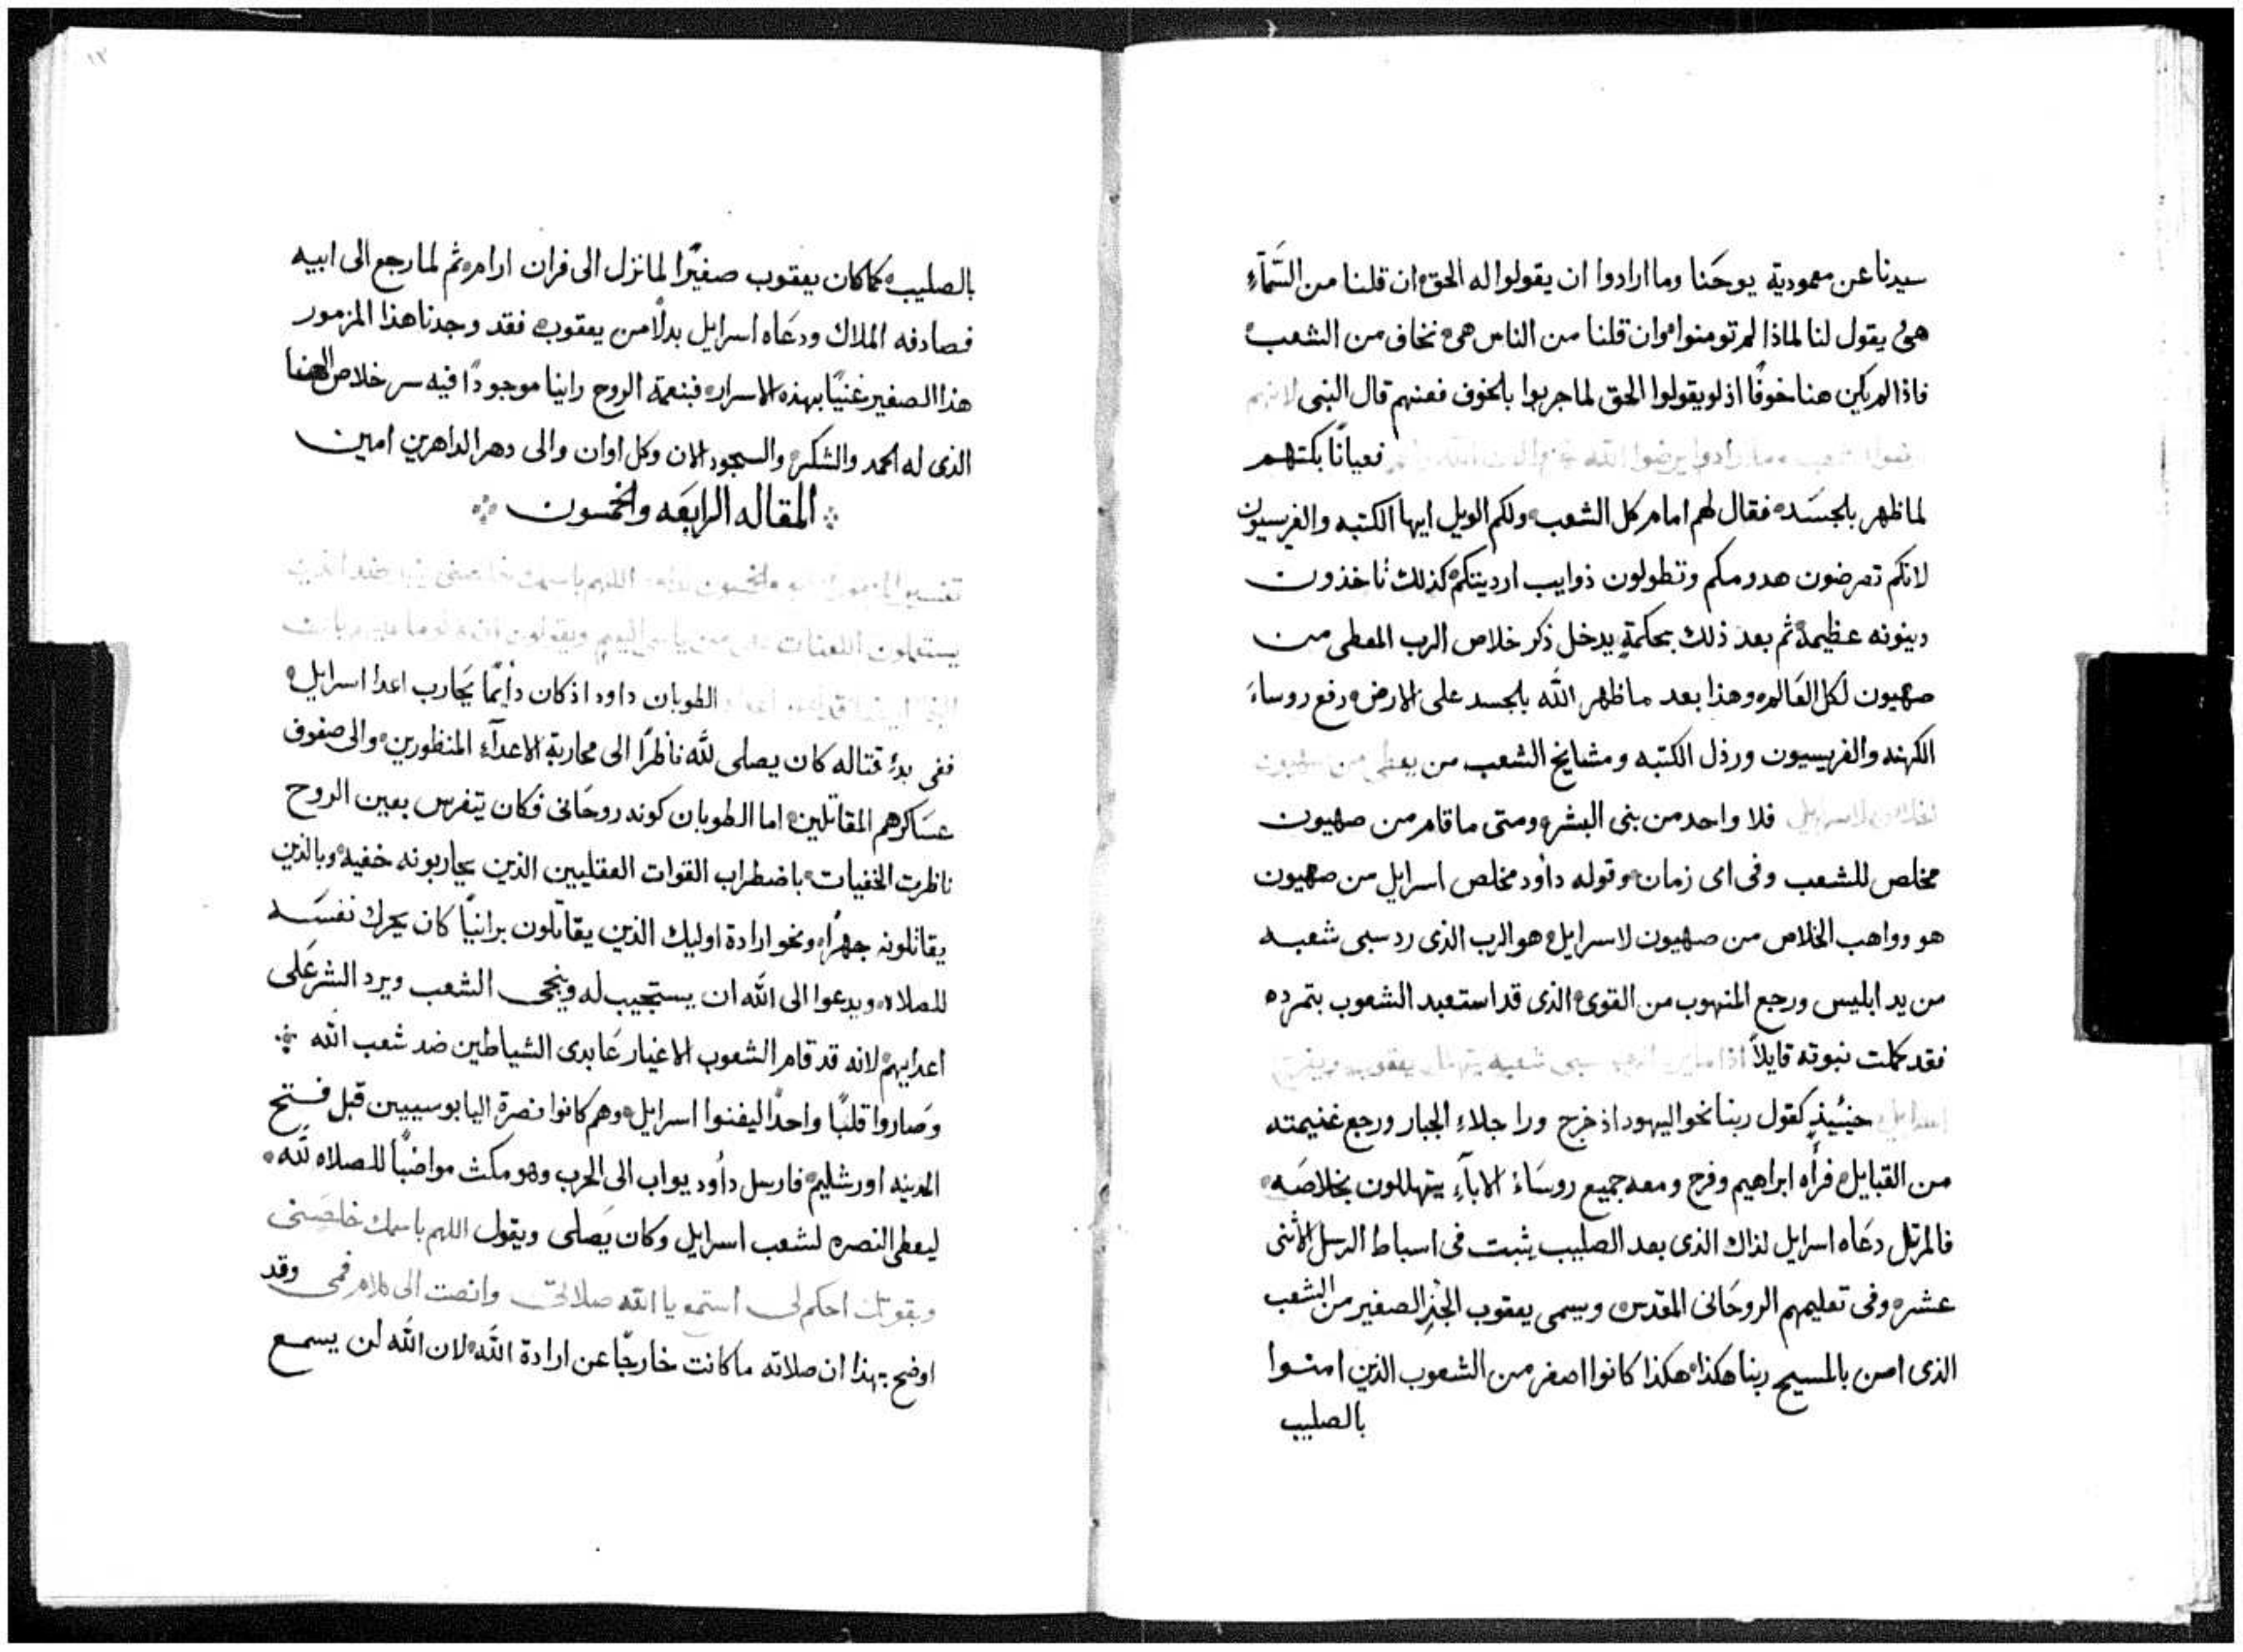 سيدنا عن معمودية يوحَنا وما ارادوا ان يقولوا له الحق ان قلنا من السَّمآءِ
هى يقول لنا لماذا لم تومنوا وان قلنا من الناس هى نخاف من الشعب
فاذا لم يكن هنا خوفًا اذ لو يقولوا الحق لما جربوا بالخوف فعنهم قال النبى لانهم
فعيانًا بكتهم
لما ظهر بالجسَد فقال لهم امام كل الشعب ولكم الويل ايها الكتبه والفريسيون
لانكم تعرضون هدومكم وتطولون ذوايب ارديتكم كذلك تاخذون
دينونه عظيمة ثم بعد ذلك بحكمةٍ يدخل ذكر خلاص الرب المعطى من
صهيون لكل العَالم وهذا بعد ما ظهر الله بالجسد على الارض رفع روساءَ
الكهنه والفريسيون ورذل الكتبه ومشايخ الشعب من يعطى من صهيون
لاسرايل فلا واحد من بنى البشر ومتى ما قام من صهيون
مخلص للشعب وفى اى زمان وقوله داود مخلص اسرايل من صهيون
هو وواهب الخلاص من صهيون لاسرايل هو الرب الذى رد سبى شعبه
من يد ابليس ورجع المنهوب من القوى الذى قد استعبد الشعوب بتمرده
فقد كملت نبوته قايلاً اذا سبى شعبه يتهلل يعقوب ويفرح
اسرايل حينُيذٍ كقول ربنا نحو اليهود اذ خرج ورا جلاءِ الجبار ورجع غنيمته
من القبايل فرأه ابراهيم وفرح ومعه جميع روسَاءَ الابآءِ يتهللون بخلاصَه
فالمرتل دعَاه اسرايل لذاك الذى بعد الصليب يثبت فى اسباط الرسل الاثنى
عشر وفى تعليمهم الروحَانى المقدس ويسمى يعقوب الجنِر الصغير من الشعب
الذى امن بالمسيح ربنا هكذا هكذا كانوا اصغر من الشعوب الذين امنوا
بالصليب
بالصليب كما كان يعقوب صغيرًا لما نزل الى فران ارام ثم لما رجع الى ابيه
فصادفه الملاك ودعَاه اسرايل بدلًا من يعقوب فقد وجدنا هذا المزمور
هذا الصغير غنيًا بهذه الاسرار فبنعمة الروح راينا موجودًا فيه سر خلاص الهنا
الذى له الحمد والشكر والسجود الان وكل اوان والى دهر الداهرين امين
المقاله الرابعَه والخمسون
الطوبان داود اذ كان دايمًا يَحارب اعدا اسرايل
ففى بدءِ قتاله كان يصلى للَّه ناظرًا الى محاربة الاعدآءِ المنظورين والى صفوف
عسَاكرهم المقاتلين اما الطوبان كونه روحَانى فكان يتفرس بعين الروح
ناظرت الخفيات باضطراب القوات العقليين الذين يحاربونه خفيه وبالذين
يقاتلونه جهرًا ونحو ارادة اوليك الذين يقاتلون برانيًا كان يحرك نفسَه
للصلاه ويدعوا الى الله ان يستجيب له وينجى الشعب ويرد الشر عَلى
اعدايهم لانه قد قام الشعوب الاغيار عَابدى الشياطين ضد شعب الله
وصَاروا قلبًا واحدًا ليفنوا اسرايل وهم كانوا نصرة اليابوسييين قبل فتح
المدينه اورشليم فارسل داُود يواب الى الحرب وهو مكث مواضبًا للصلاه للَّه
ليعطى النصره لشعب اسرايل وكان يَصلى ويقول اللهم باسمك خلصنى
وبقوتك احكم لى استمع يا الله صلاتى وانصت الى كلام فمى وقد
اوضح بهذا ان صلاته ما كانت خارجًا عن ارادة الله لان الله لن يسمع